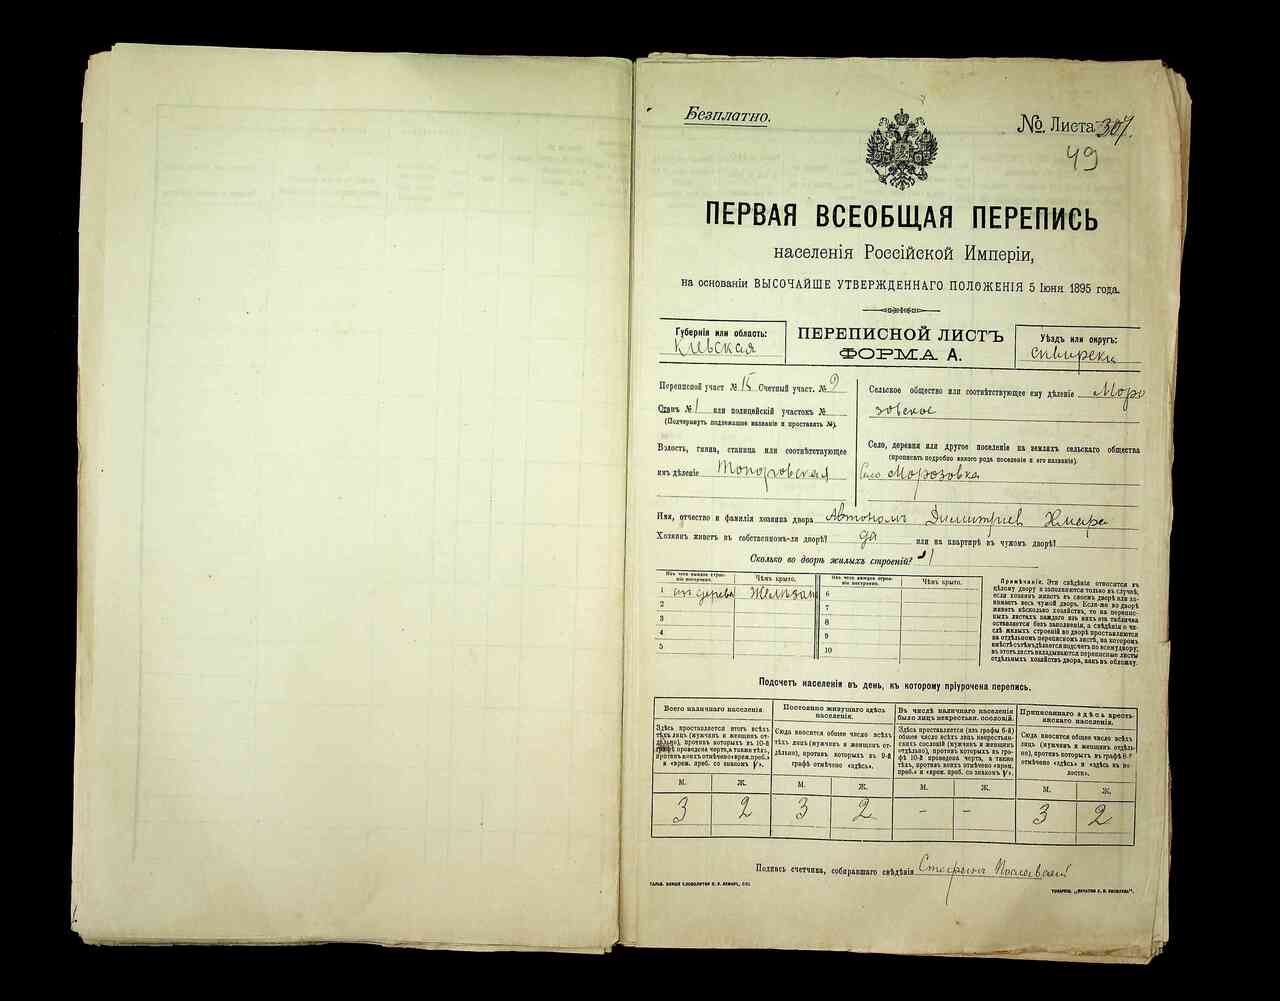 Безплатно.
№ Листа 307.
49
ПЕРВАЯ ВСЕОБЩАЯ ПЕРЕПИСЬ
населенія Россійской Имперіи,
на основаніи ВЫСОЧАЙШЕ УТВЕРЖДЕННАГО ПОЛОЖЕНІЯ 5 Іюня 1895 года.
Губернія или область:
Кіевская
ПЕРЕПИСНОЙ ЛИСТЪ
ФОРМА А.
Уѣздъ или округъ:
Переписной участ № 15 Счетный участ. № 9
Станъ № 1 или полицейскій участокъ №
(Подчеркнуть подлежащее названіе и проставить №).
Волость, гмина, станица или соотвѣтствующее
имъ дѣленіе Топоровская
Сельское общество или соотвѣтствующее ему дѣленіе Моро
зовское
Село, деревня или другое поселеніе на земляхъ сельскаго общества
(прописать подробно какого рода поселеніе и его названіе).
Село Морозовка
Имя, отчество и фамилія хозяина двора Автономъ Димитріев Хмара
Хозяинъ живетъ въ собственномъ-ли дворѣ? да или на квартирѣ въ чужомъ дворѣ?
Сколько во дворѣ жилыхъ строеній? 1
Изъ чего каждое строеніе построено.
Чѣмъ крыто.
Изъ чего каждое строеніе построено.
Чѣмъ крыто.
1 изъ дерева
6
2
7
3
8
4
9
5
10
Примѣчаніе. Эти свѣдѣнія относятся къ
цѣлому двору и заполняются только въ случаѣ,
если хозяинъ живетъ въ своемъ дворѣ или занимаетъ
весь чужой дворъ. Если-же во дворѣ
живетъ нѣсколько хозяйствъ, то на переписныхъ
листахъ каждаго изъ нихъ эта табличка
оставляется безъ заполненія, а свѣдѣнія о числѣ
жилыхъ строеній во дворѣ проставляются
на отдѣльномъ переписномъ листѣ, на которомъ
вмѣстѣ съ тѣмъ дѣлается подсчетъ по всему двору;
въ этотъ листъ вкладываются переписные листы
отдѣльныхъ хозяйствъ двора, какъ въ обложку.
Подсчетъ населенія въ день, къ которому пріурочена перепись.
Всего наличнаго населенія.
Здѣсь проставляется итогъ всѣхъ
тѣхъ лицъ (мужчинъ и женщинъ отдѣльно),
противъ которыхъ въ 10-й
графѣ проведена черта, а также тѣхъ,
противъ коихъ отмѣчено «врем. преб.»
и «врем. преб. со знакомъ V».
Постоянно живущаго здѣсь
населенія.
Сюда вносится общее число всѣхъ
тѣхъ лицъ (мужчинъ и женщинъ отдѣльно),
противъ которыхъ въ 9-й
графѣ отмѣчено «здѣсь».
Въ числѣ наличнаго населенія
было лицъ некрестьян. сословій.
Здѣсь проставляется (изъ графы 6-й)
общее число всѣхъ лицъ некрестьянскихъ
сословій (мужчинъ и женщинъ
отдѣльно), противъ которыхъ въ графѣ
10-й проведена черта, а также
тѣхъ, противъ коихъ отмѣчено «врем.
преб.» и «врем. преб. со знакомъ V».
Приписаннаго здѣсь крестьянскаго
населенія.
Сюда вносится общее число всѣхъ
лицъ (мужчинъ и женщинъ отдѣльно),
противъ которыхъ въ графѣ 8-й
отмѣчено «здѣсь» и «здѣсь въ волости».
М. Ж. М. Ж. М. Ж. М. Ж.
3 2 3 2 - - 3 2
Подпись счетчика, собиравшаго свѣдѣнія